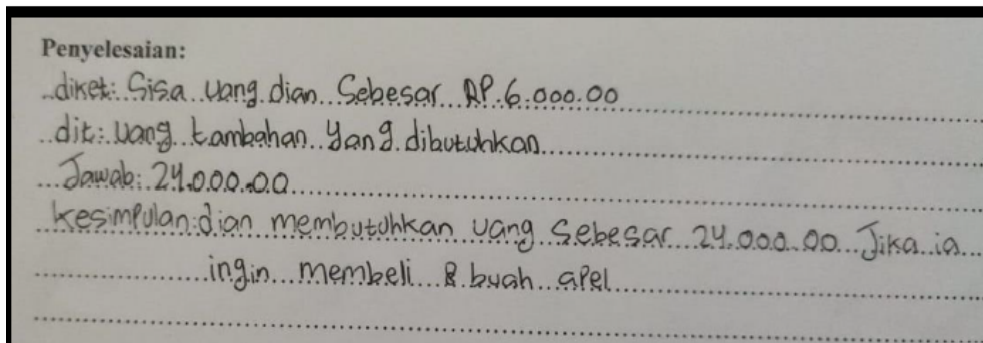 Penyelesaian:
diket: Sisa uang dian Sebesar RP.6.000.00
dit: uang tambahan yang dibutuhkan
Jawab: 24.000.00
kesimpulan: dian membutuhkan uang Sebesar 24.000.00 Jika ia
ingin membeli 8 buah apel